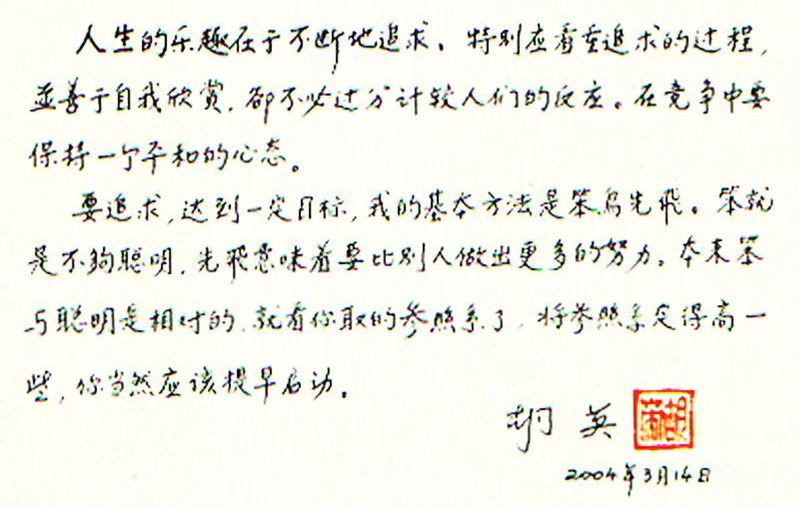 人生的乐趣在于不断地追求。特别应看重追求的过程,
並善于自我欣赏,卻不必过分计较人们的反应。在竞争中要
保持一个平和的心态。
要追求,达到一定目标,我的基本方法是笨鸟先飛。笨就
是不夠聪明,先飛意味着要比别人做出更多的努力。本来笨
与聪明是相对的,就看你取的参照系了,将参照系定得高一
些,你当然应该提早启动。
胡 英
2004年3月14日